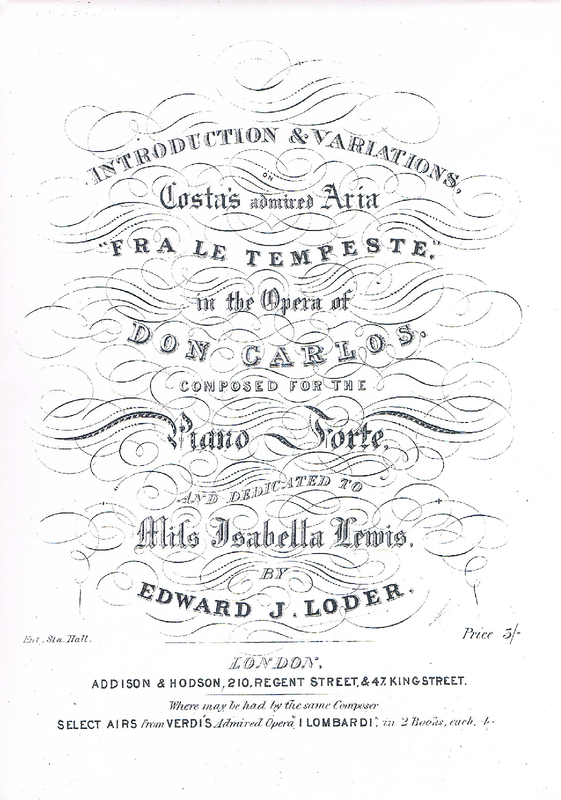 INTRODUCTION & VARIATIONS,
ON
Costa's admired Aria
"FRA LE TEMPESTE,"
in the Opera of
DON CARLOS.
COMPOSED FOR THE
Piano Forte,
AND DEDICATED TO
Miſs Isabella Lewis.
BY
EDWARD J. LODER.
Ent. Sta. Hall. Price 3/-
LONDON,
ADDISON & HODSON, 210, REGENT STREET, & 47, KING STREET.
Where may be had by the same Composer
SELECT AIRS from VERDI'S Admired Opera, I LOMBARDI", in 2 Books, each,